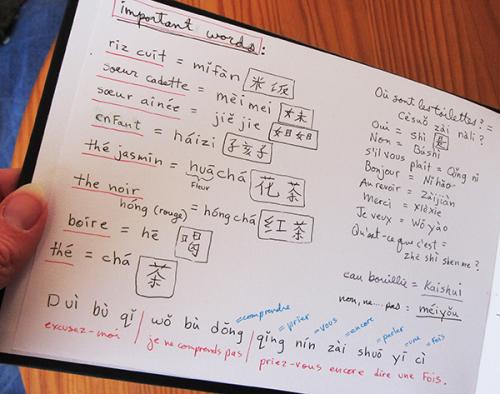 important words:
riz cuit = mǐfàn 米饭
sœur cadette = mèi mei 妹妹
sœur ainée = jiě jie 姐姐
enfant = háizi 孩子
thé jasmin = huā chá 花茶
fleur
the noir
hóng (rouge) = hóng chá 红茶
boire = hē 喝
thé = chá 茶
Où sont les toilettes? =
Cèsuǒ zài nàli?
Oui = shì 是
Non = Búshì
s'il vous plait = Qǐng nǐ
Bonjour = Nǐ hǎo
Au revoir = Zàijiàn
Merci = Xièxie
Je veux = Wǒ yào
Qu'est-ce que c'est =
zhè shì shenme?
eau bouillie = Kaishui
non, ne... pas = méiyǒu
=comprendre =prier =vous =encore =parler =une =fois
Duì bù qǐ / wǒ bù dǒng / qǐng nín zài shuō yí cì
excusez-mois / je ne comprends pas / priez-vous encore dire une fois.